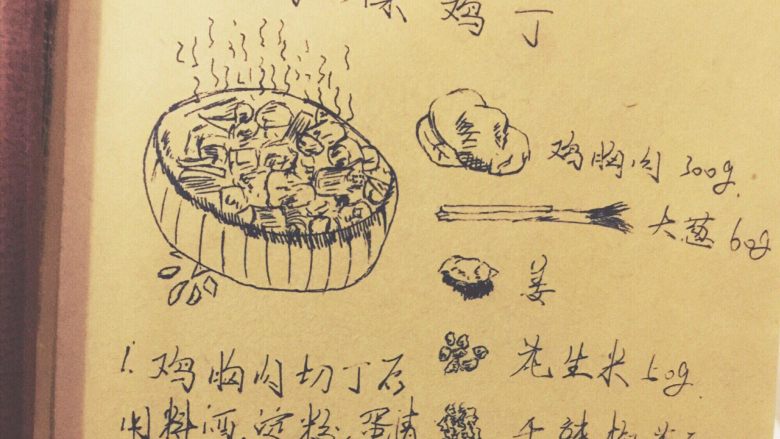 鸡丁
鸡胸肉 300g
大葱 60g
姜
花生米 60g
1. 鸡胸肉切丁后
用料酒、淀粉、蛋清